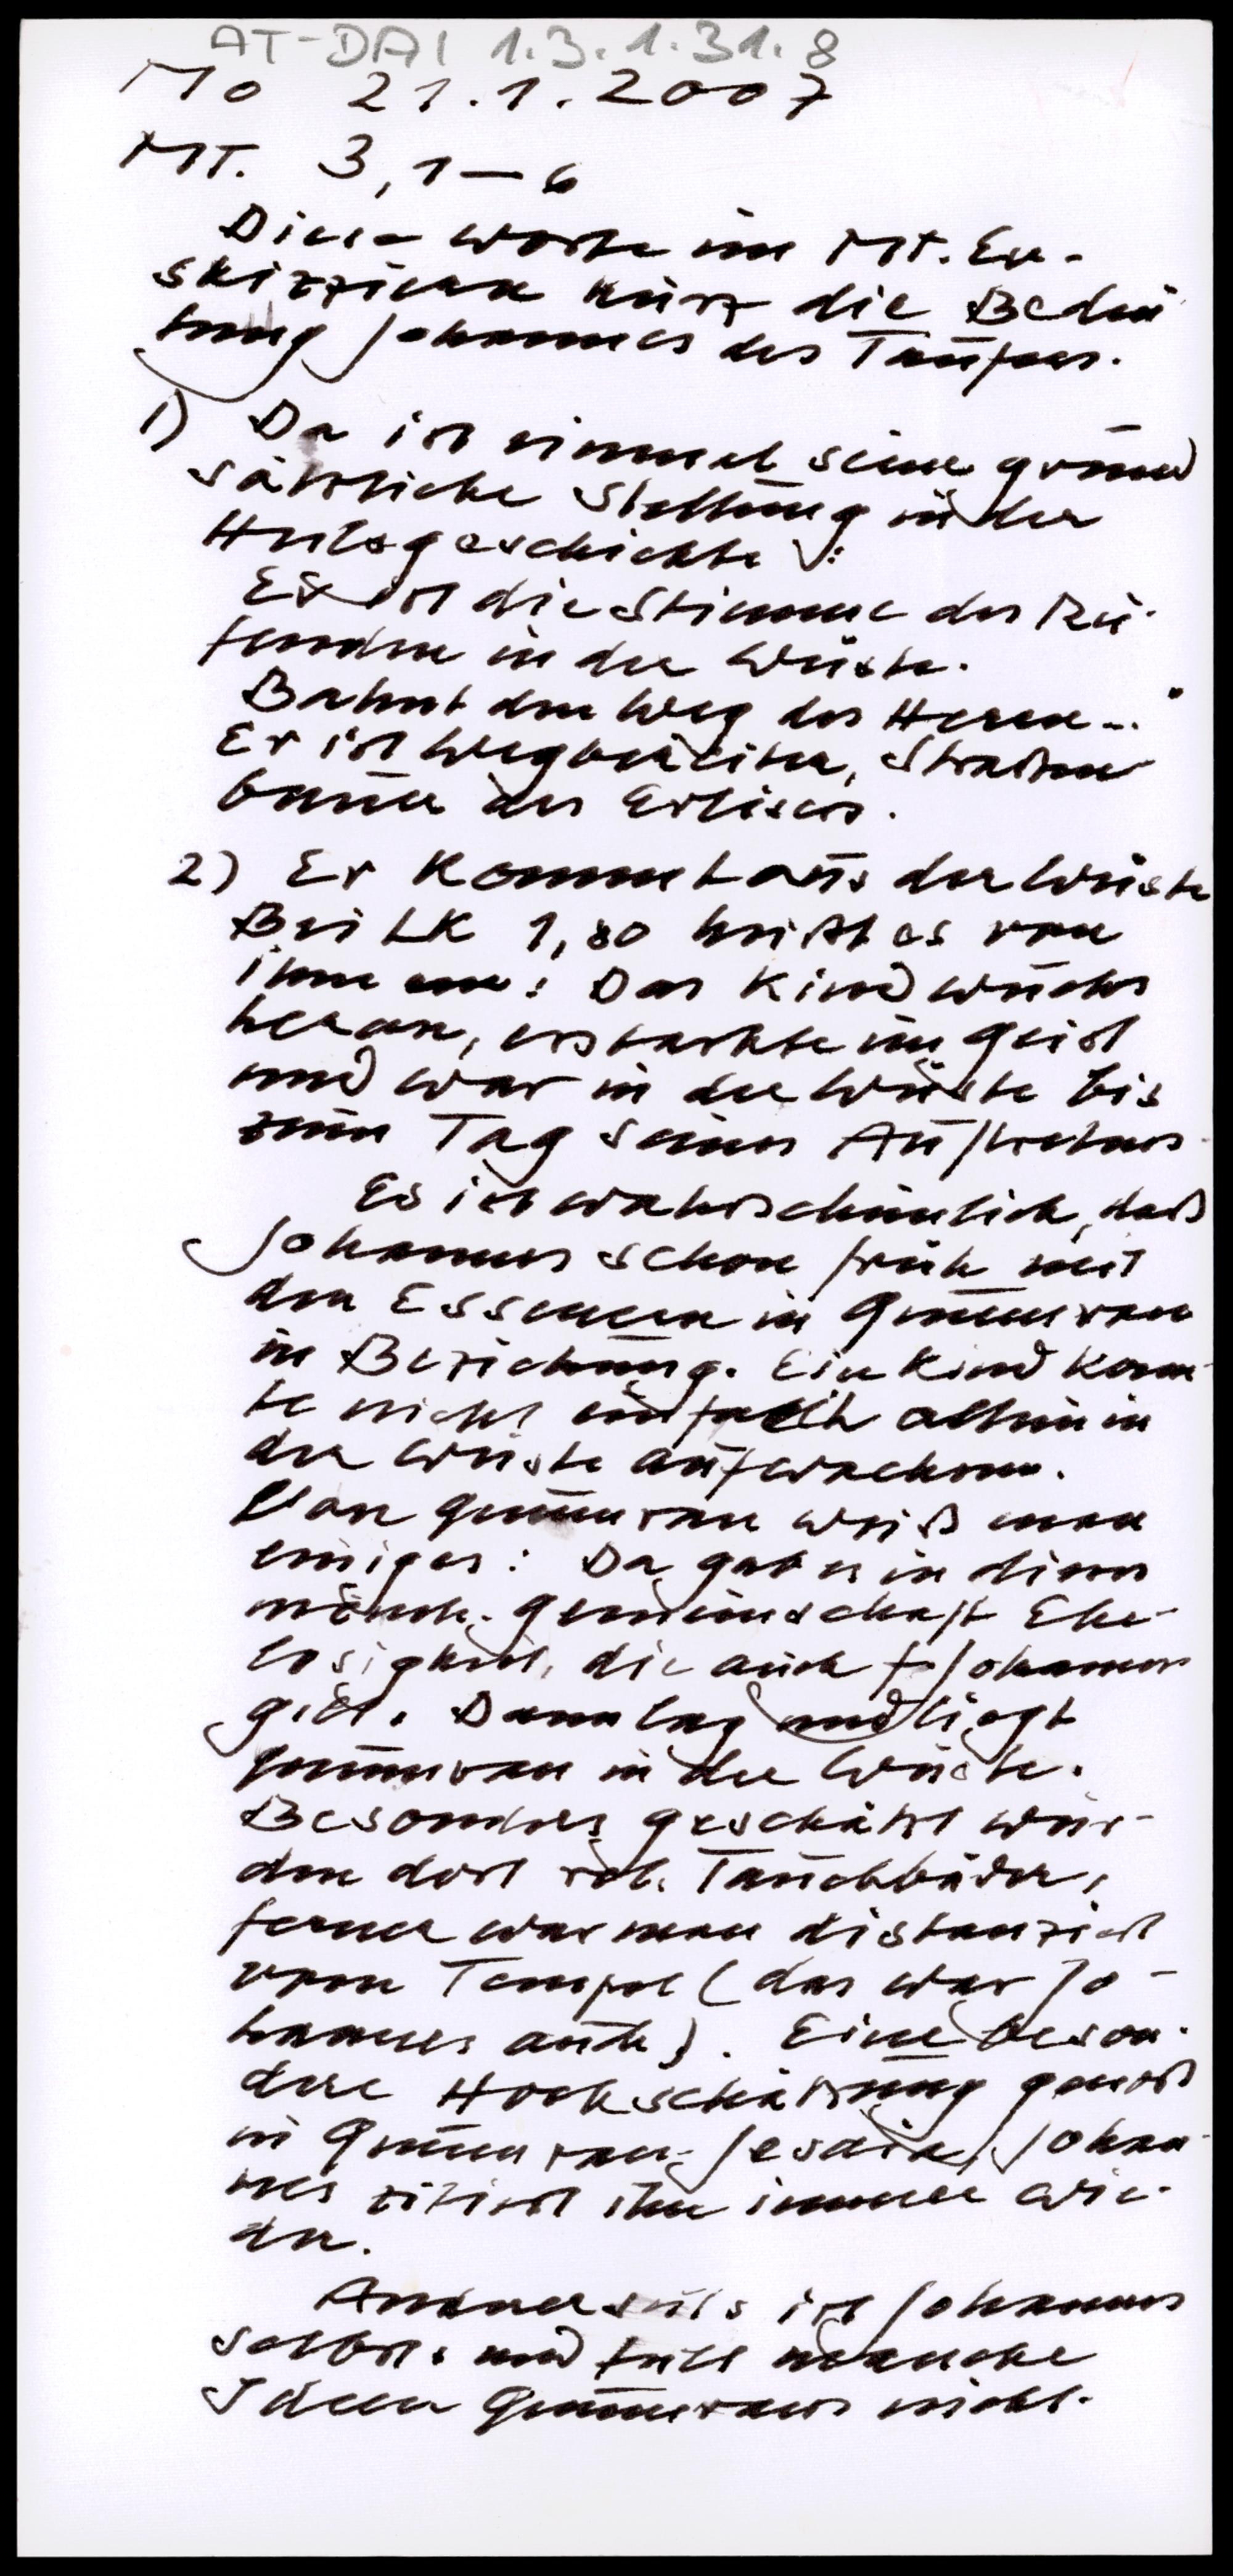 AT-DAI 1.3.1.31.8
Mo 21.1.2007
MT. 3,1-6
Diese Worte im Mt. Ev.
skizzieren kurz die Bedeu
tung Johannes des Täufers.
1) Da ist einmal seine grund
sätzliche Stellung in der
Heilsgeschichte:
Er ist die Stimme des Ru-
fenden in der Wüste.
Bahnt den Weg des Herrn...
Er ist Wegbereiter, Straßen
bauer des Erlösers.
2) Er kommt aus der Wüste
Bei LK 1,80 heißt es von
ihm: Das Kind wuchs
heran, erstarkte im Geist
und war in der Wüste bis
zum Tag seines Auftretens.
Es ist wahrscheinlich, daß
Johannes schon früh mit
den Essenern in Qumran
in Beziehung. Ein Kind konn-
te nicht einfach allein in
der Wüste aufwachsen.
Von Qumran weiß man
einiges: Da gab es in dieser
mönch. Gemeinschaft Ehe-
losigkeit, die auch f. Johannes
gilt. Dann lag und liegt
Qumran in der Wüste.
Besonders geschätzt wur-
den dort rel. Tauchbäder,
ferner war man distanziert
vom Tempel (das war Jo-
hannes auch). Eine beson-
dere Hochschätzung genoß
in Qumran Jesaia, Johan-
nes zitiert ihn immer wie-
der.
Andererseits ist Johannes
selbst. und teilt manche
Ideen Qumrans nicht.